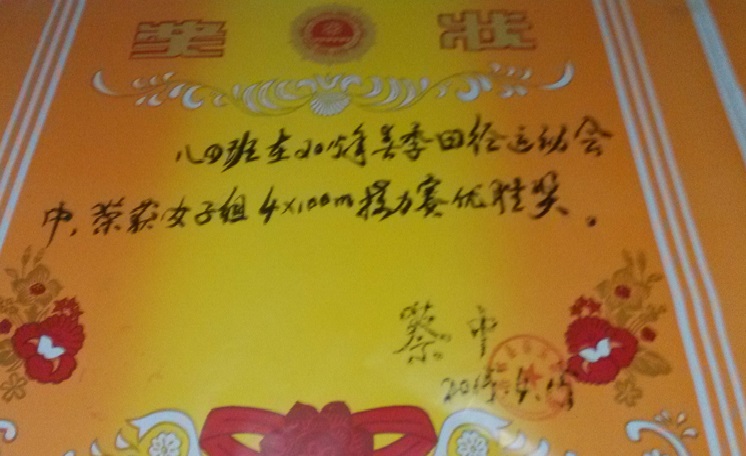 奖状
八四班在2015年春季田径运动会
中,荣获女子组4×100m接力赛优胜奖。
蔡中
2015.4.